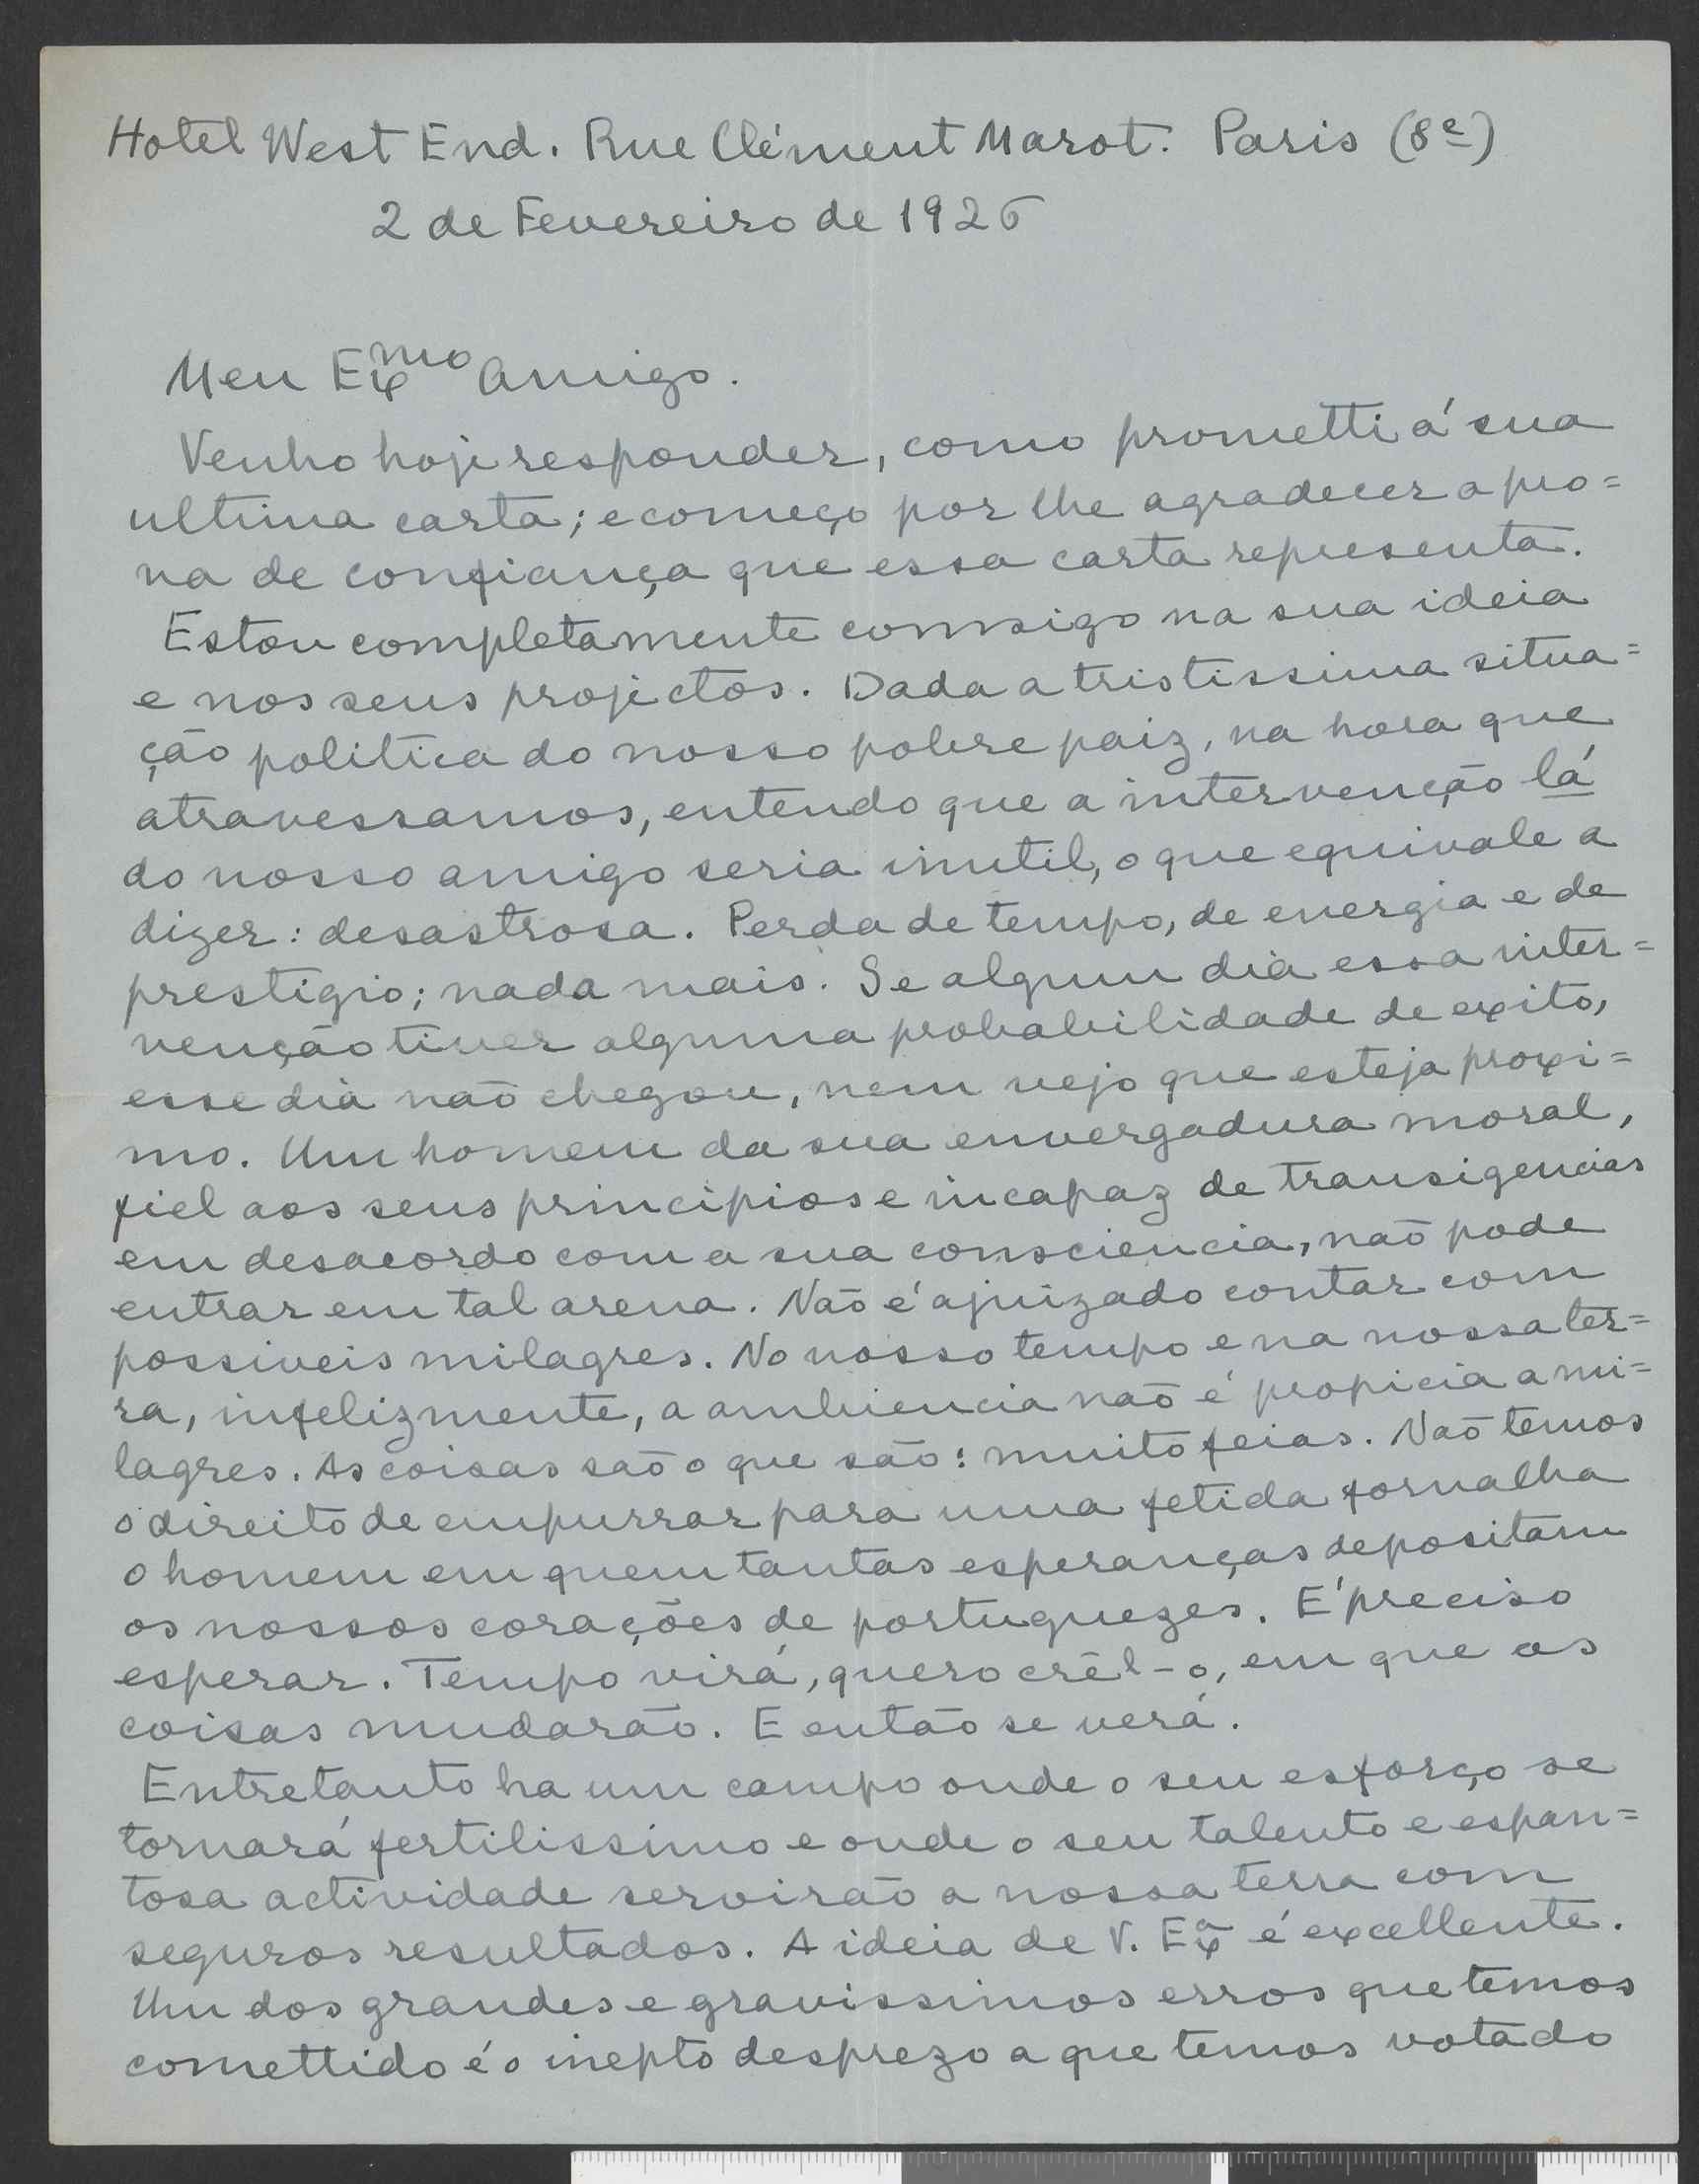 Hotel West End. Rue Clément Marot. Paris (8e)
2 de Fevereiro de 1926
Meu Exmo Amigo.
Venho hoje responder, como prometti á sua
ultima carta; e começo por lhe agradecer a pro=
va de confiança que essa carta representa.
Estou completamente comsigo na sua ideia
e nos seus projectos. Dada a tristissima situa=
ção politica do nosso pobre paiz, na hora que
atravessamos, entendo que a intervenção lá
do nosso amigo seria inutil, o que equivale a
dizer: desastrosa. Perda de tempo, de energia e de
prestigio; nada mais. Se algum dia essa inter=
venção tiver alguma probabilidade de exito,
esse dia não chegou, nem vejo que esteja proxi=
mo. Um homem da sua envergadura moral,
fiel aos seus principios e incapaz de transigencias
em desacordo com a sua consciencia, não pode
entrar em tal arena. Não é ajuizado contar com
possiveis milagres. No nosso tempo e na nossa ter=
ra, infelizmente, a ambiencia não é propicia a mi=
lagres. As coisas são o que são: muito feias. Não temos
o direito de empurrar para uma fetida fornalha
o homem em quem tantas esperanças depositam
os nossos corações de portuguezes. É preciso
esperar. Tempo virá, quero crêl-o, em que as
coisas mudarão. E então se verá.
Entretanto ha um campo onde o seu esforço se
tornará fertilissimo e onde o seu talento e espan=
tosa actividade servirão a nossa terra com
seguros resultados. A ideia de V. Exª é excellente.
Um dos grandes e gravissimos erros que temos
comettido é o inepto desprezo a que temos votado